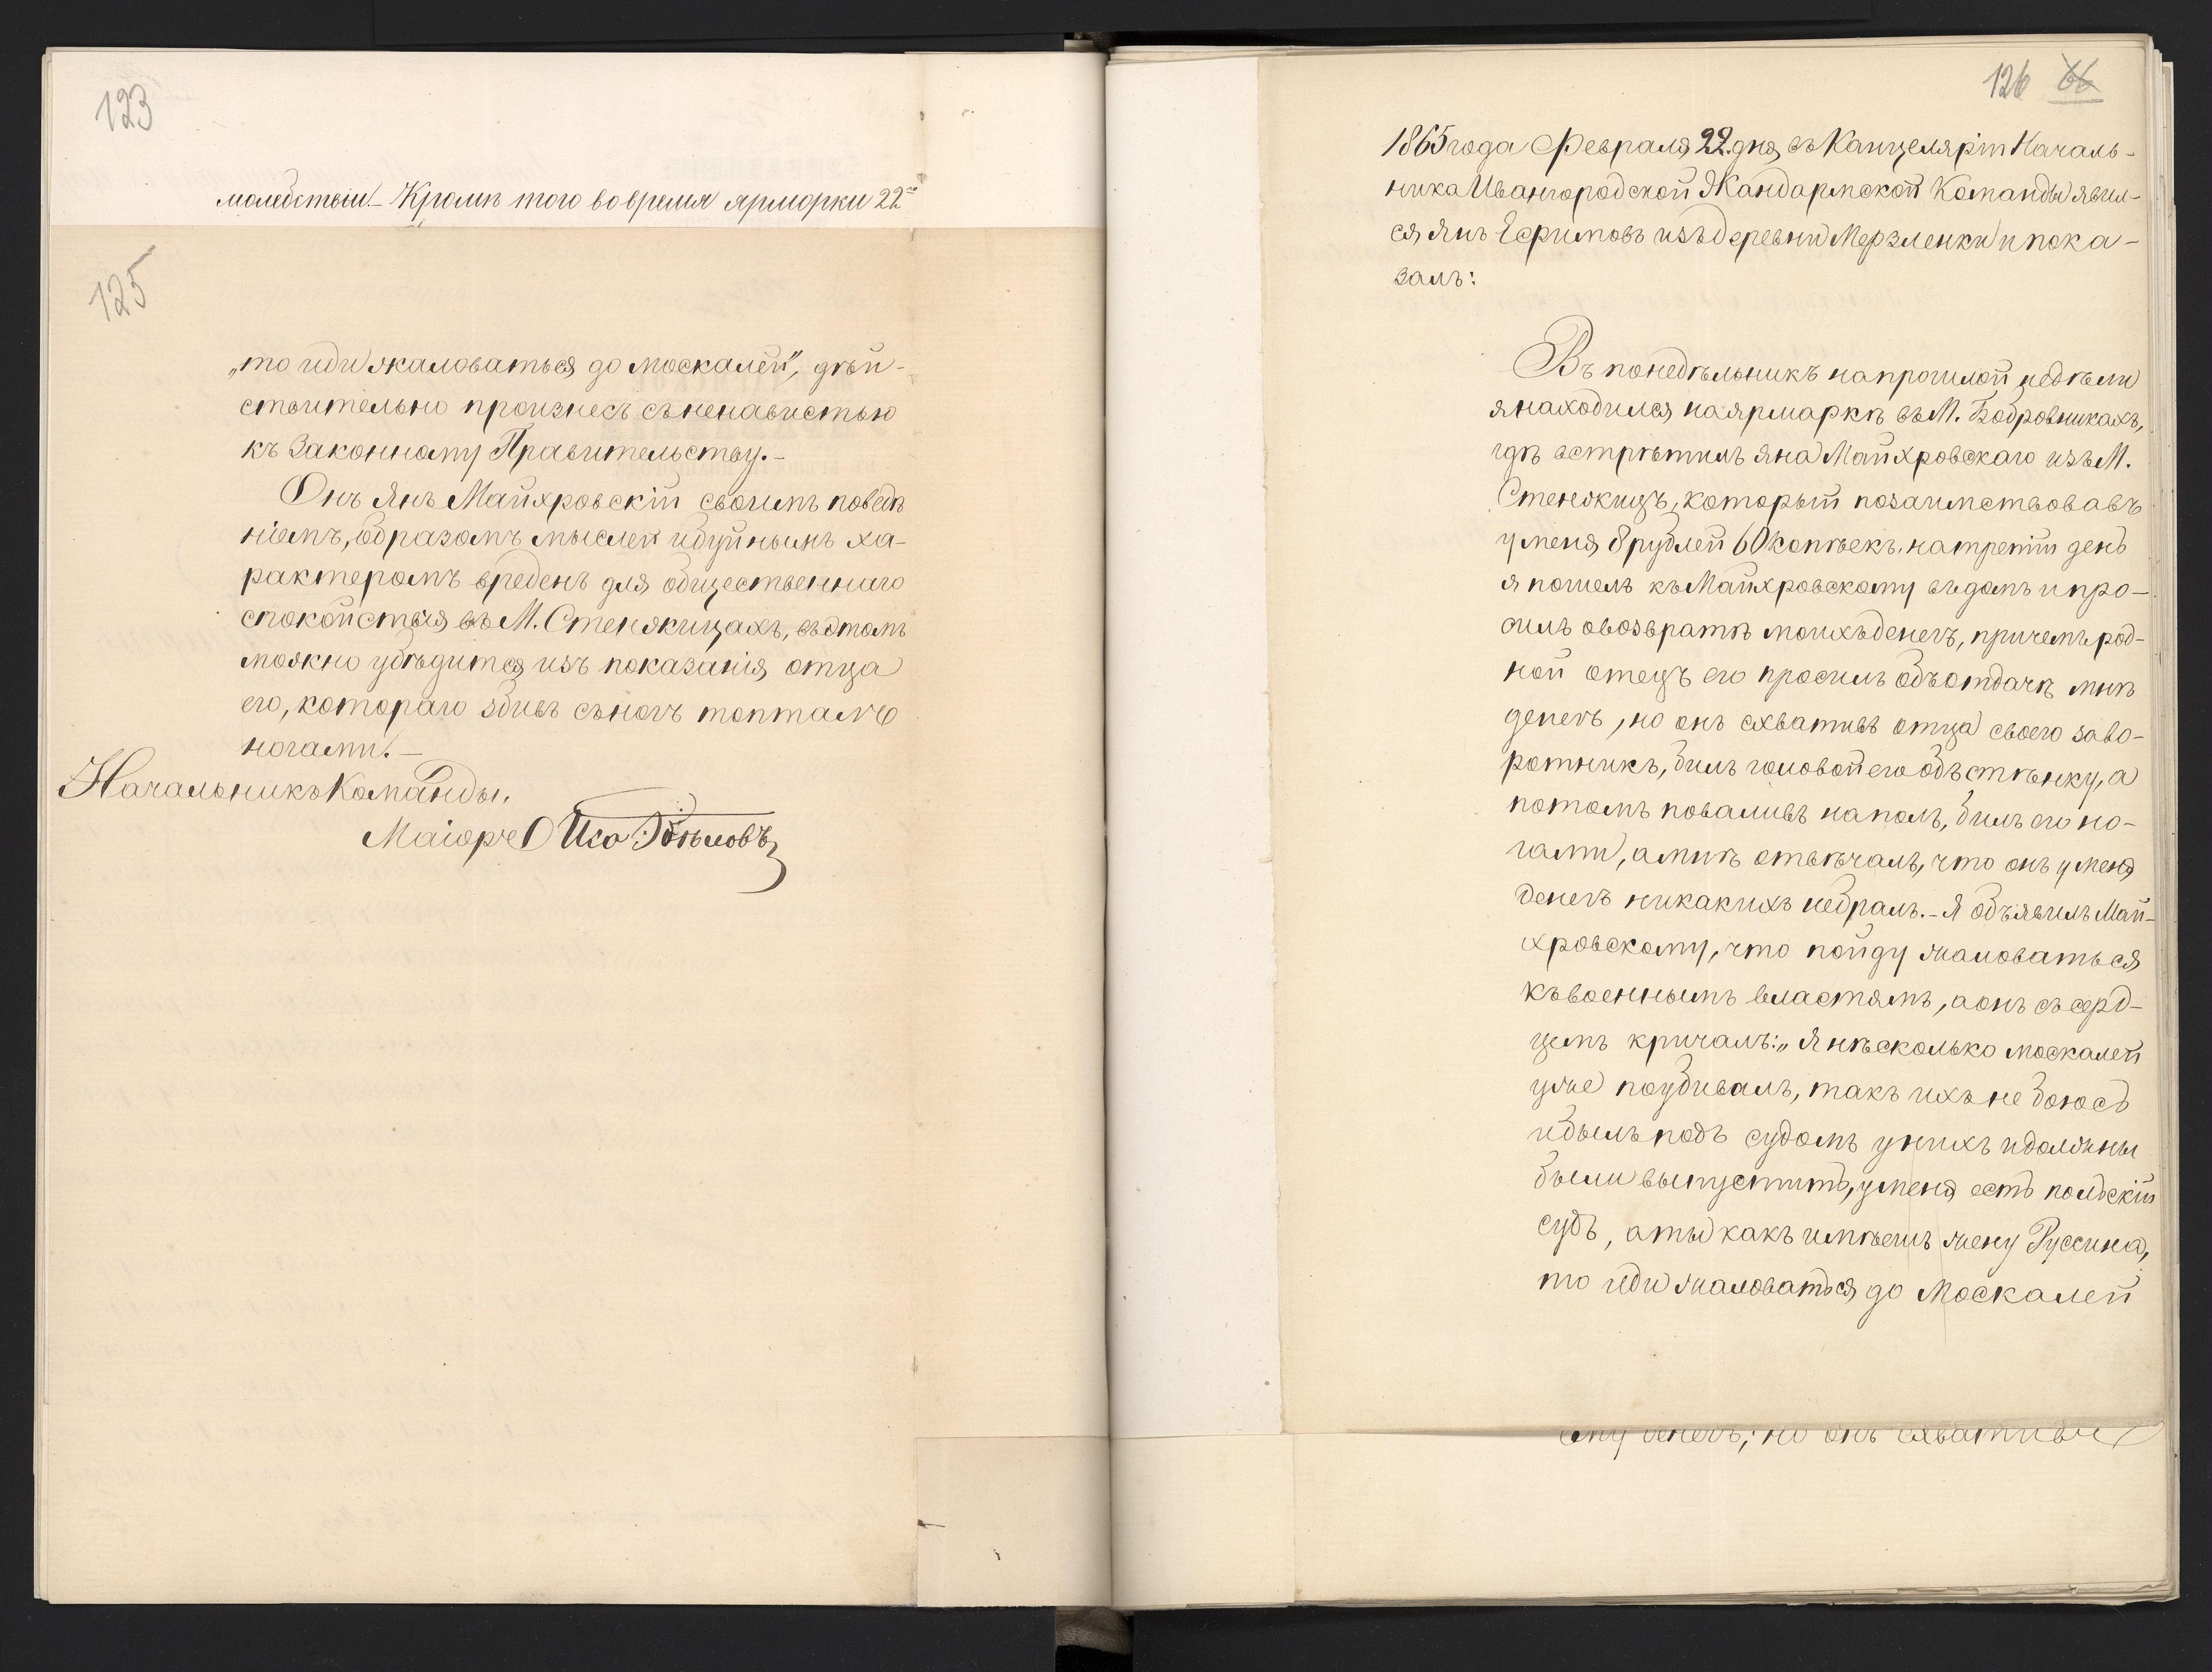 123
малѣдствіи. Кромѣ того во время ярморки 22го
125
„то иди жаловаться до москалей", дѣй-
ствительно произнесъ съ ненавистью
къ Законному Правительству.-
Онъ Янъ Майхровскій своимъ поведѣ
ніемъ, образомъ мыслей и буйнымъ ха-
рактеромъ вреденъ для общественнаго
спокойствія въ М. Стенжицахъ, въ этомъ
можно убѣдится изъ показанія отца
его, котораго збивъ съ ногъ топталъ
ногами.-
Начальникъ Команды.
Маіоръ
126 66
1865 года Февраля 22. дня, въ Канцеляріи Началь-
ника Ивангородской Жандармской Команды явил-
ся Янъ Ефимовъ изъ деревни Мерзленки и пока-
залъ:
Въ понедѣльникъ на прошлой недѣли
я находился на ярмаркѣ въ М. Бобровникахъ,
гдѣ встрѣтилъ Яна Майхровскаго изъ М.
Стенжицъ, который позаимствовавъ
у меня 8 рублей 60 копѣекъ. на третій день
я пошелъ къ Майхровскому въ домъ и про-
силъ о возвратѣ моихъ денегъ, причемъ род-
ной отецъ его просилъ объ отдачѣ мнѣ
денегъ, но онъ схвативъ отца своего за во-
ротникъ, билъ головой его объ стѣнку, а
потомъ поваливъ на полъ, билъ его но-
гами, а мнѣ отвѣчалъ, что онъ у меня
денегъ никакихъ небралъ.- Я объявилъ Май-
хровскому, что пойду жаловаться
къ военнымъ властямъ, а онъ съ серд-
цемъ кричалъ: „Я нѣсколько москалей
уже поубивалъ, такъ ихъ не боюсь
и былъ подъ судомъ у нихъ и должны
были выпустить, у меня есть польскій
судъ, а ты какъ имѣешь жену Руссина,
то иди жаловаться до Москалей
ему денегъ; но онъ схвативъ